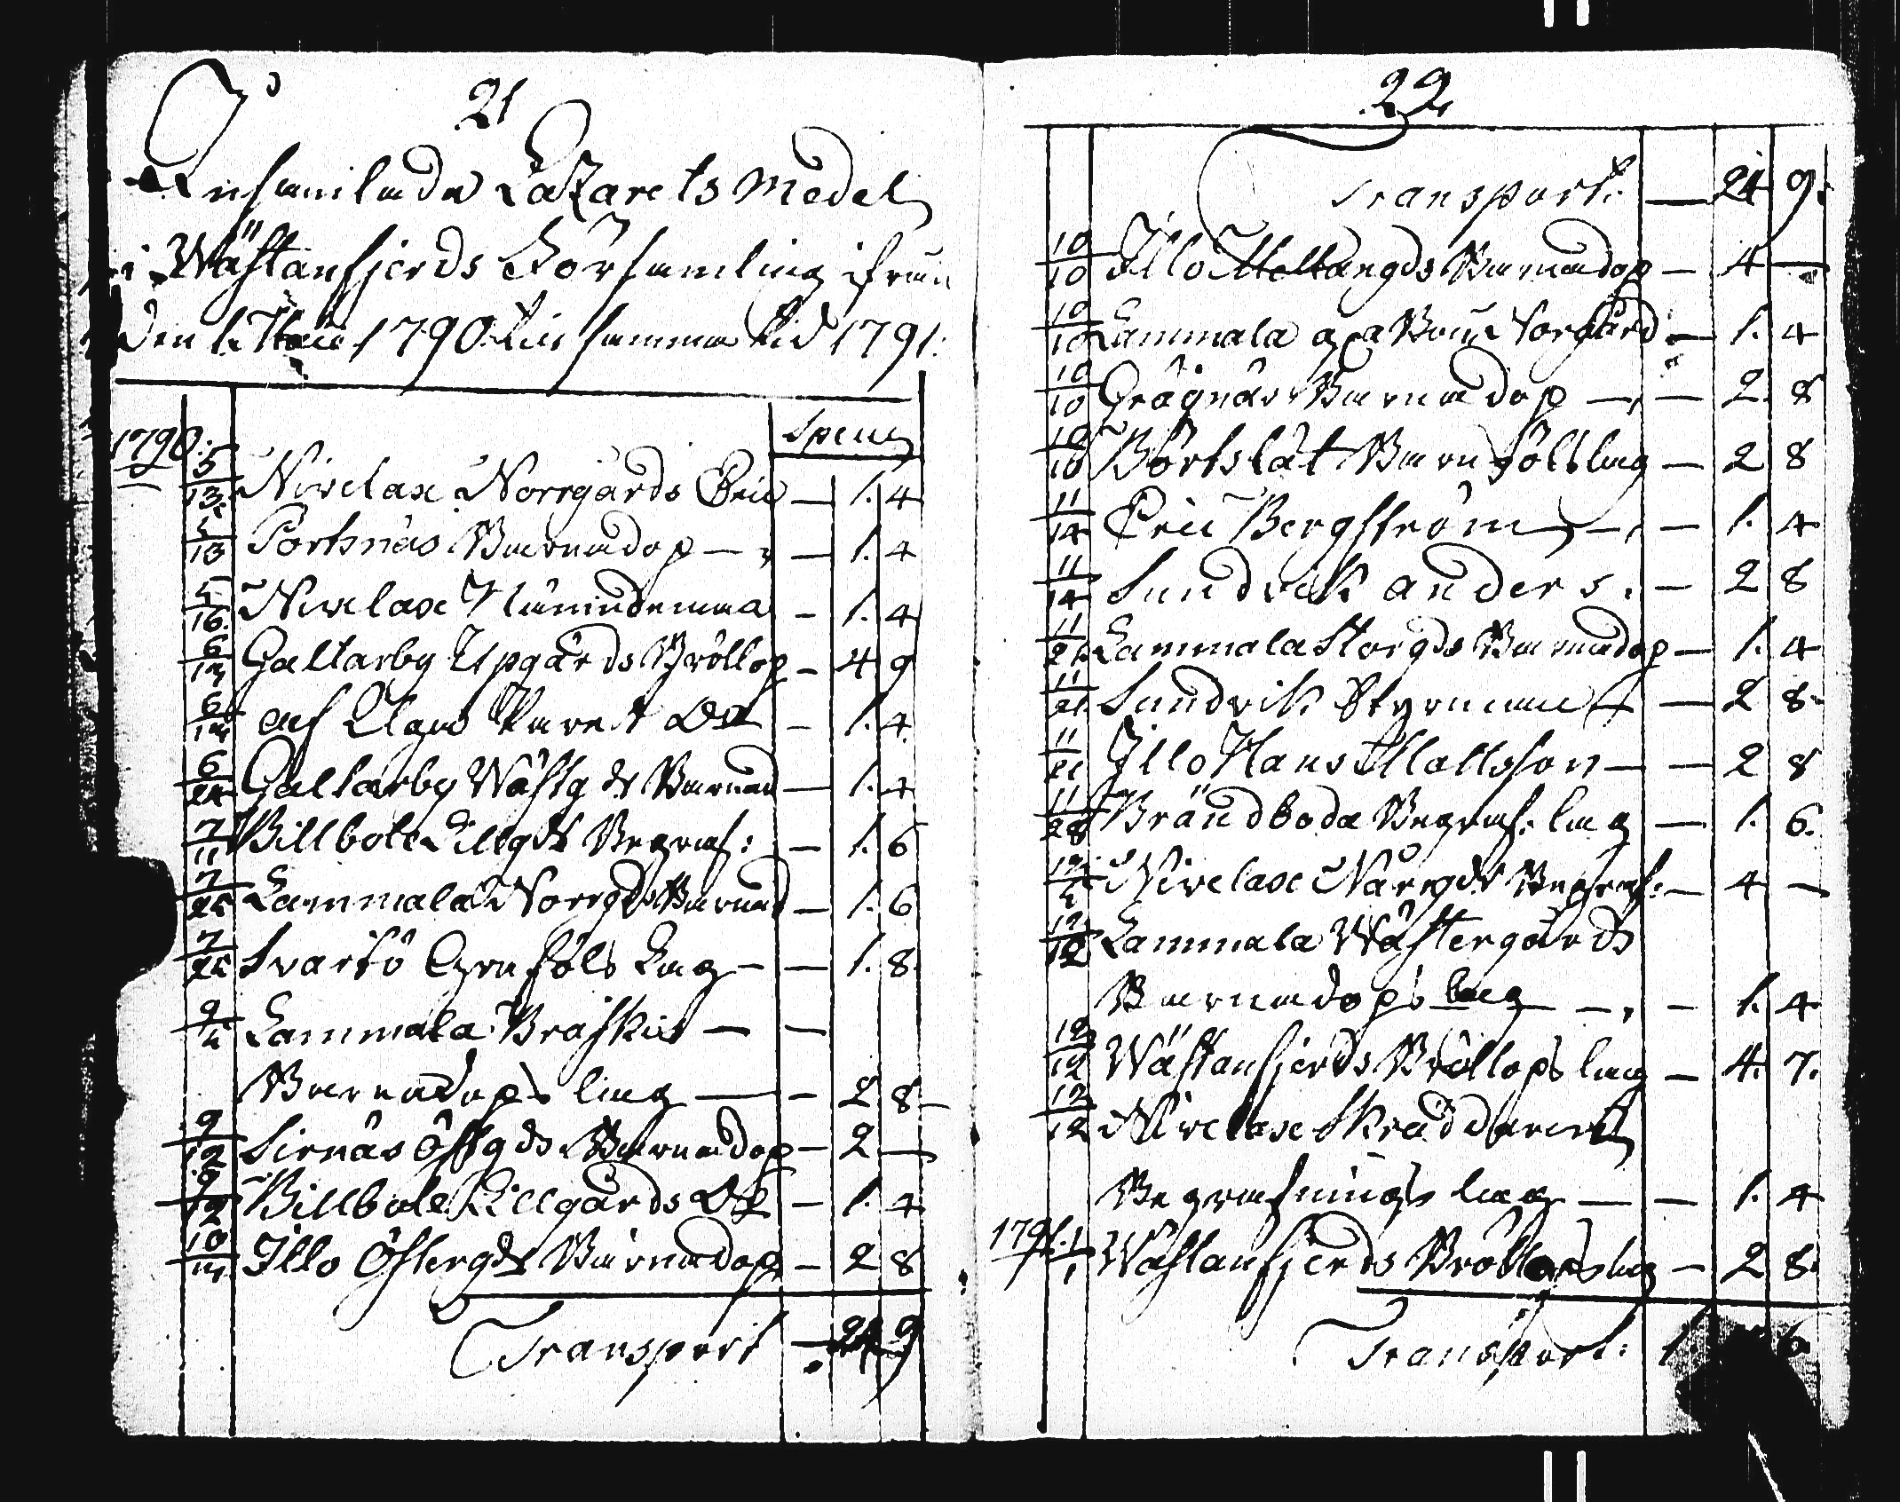 21
Insamlade Lazarets Medel
i Wästanfjerds Församling ifrån
den 1 Maii 1790 til samma tid 1791.
Specie
1790: 5/13 Nivelax Norrgårds Eric — 1. 4
5/13 Portnäs Barnadop — 1. 4
5/16 Nivelax — 1. 4
6/13 Galtarby Upgårds Bröllop — 4 9
6/ af — 1. 4
6/24 Galtarby Wästgds Barnad — 1. 4
7/11 Billbole Lillgds Begraf: — 1. 6
7/25 Lammala Norrgds Barnad — 1. 6
7/25 Svartö Grafföls Lag — 1. 8
9/ Lammala Braskis —
Barnadops lag — 2 8
9/12 Sirnäs Östgds Barnadop — 2 —
9/12 Billbole Lillgårds — 1. 4
10/ Illo Östergds Barnadop — 2 8
Transport — 24 9
22
Transport: — 24 9.
10/10 Illo Mellangds Barnadop — 4 —
10/10 Lammala Norgård — 1. 4
10/10 Grågnäs Barnadop — 2. 8
10/10 Börtslåt Barnsöls lag — 2 8
11/14 Eric Bergström — 1. 4
11/14 Sundvik Anders. — 2 8
11/21 Lammala Storgds Barnadop — 1. 4
11/21 Sundvik Styrman — 2 8
11/21 Illo Hans Mattsson — 2 8
11/28 Brändboda Begraf: lag — 1. 6.
12/ Nivelax Norrgds Begraf: — 4 —
12/12 Lammala Wästergårds
Barnadops lag — 1. 4
12/12 Wästanfjerds Bröllops lag — 4. 7.
12/12 Nivelax Skräddarens
Begrafnings lag — 1. 4
1791: 1/1 Wästanfjerds Bröllops lag — 2 8.
Transport: 6